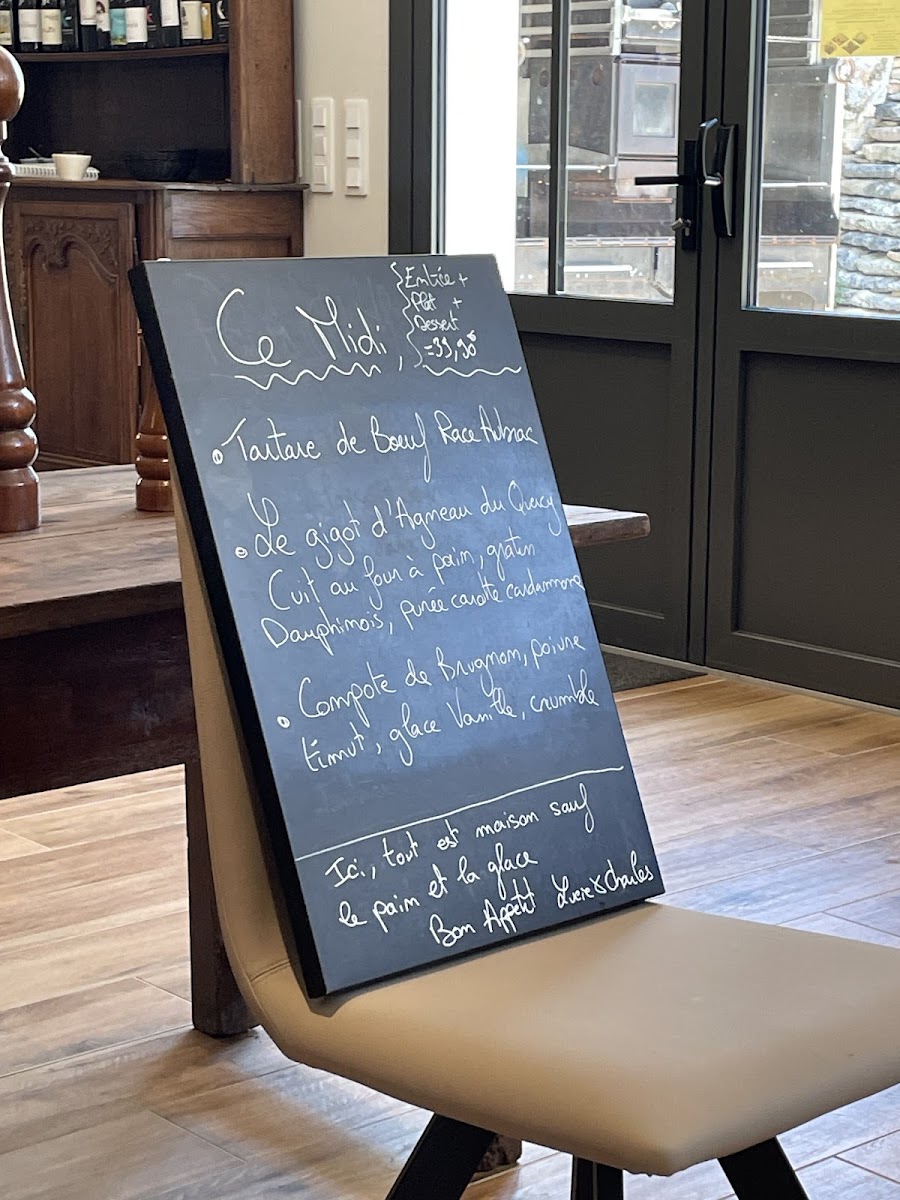 Ce Midi,
Entrée +
Plat +
Dessert
=33,90€
Tartare de Boeuf Race Aubrac
Le gigot d'Agneau du Quercy
Cuit au four à pain, gratin
Dauphinois, purée carotte cardamome
Compote de Brugnon, poivre
timut, glace Vanille, crumble
Ici, tout est maison sauf
le pain et la glace
Bon Appétit Lucie & Charles